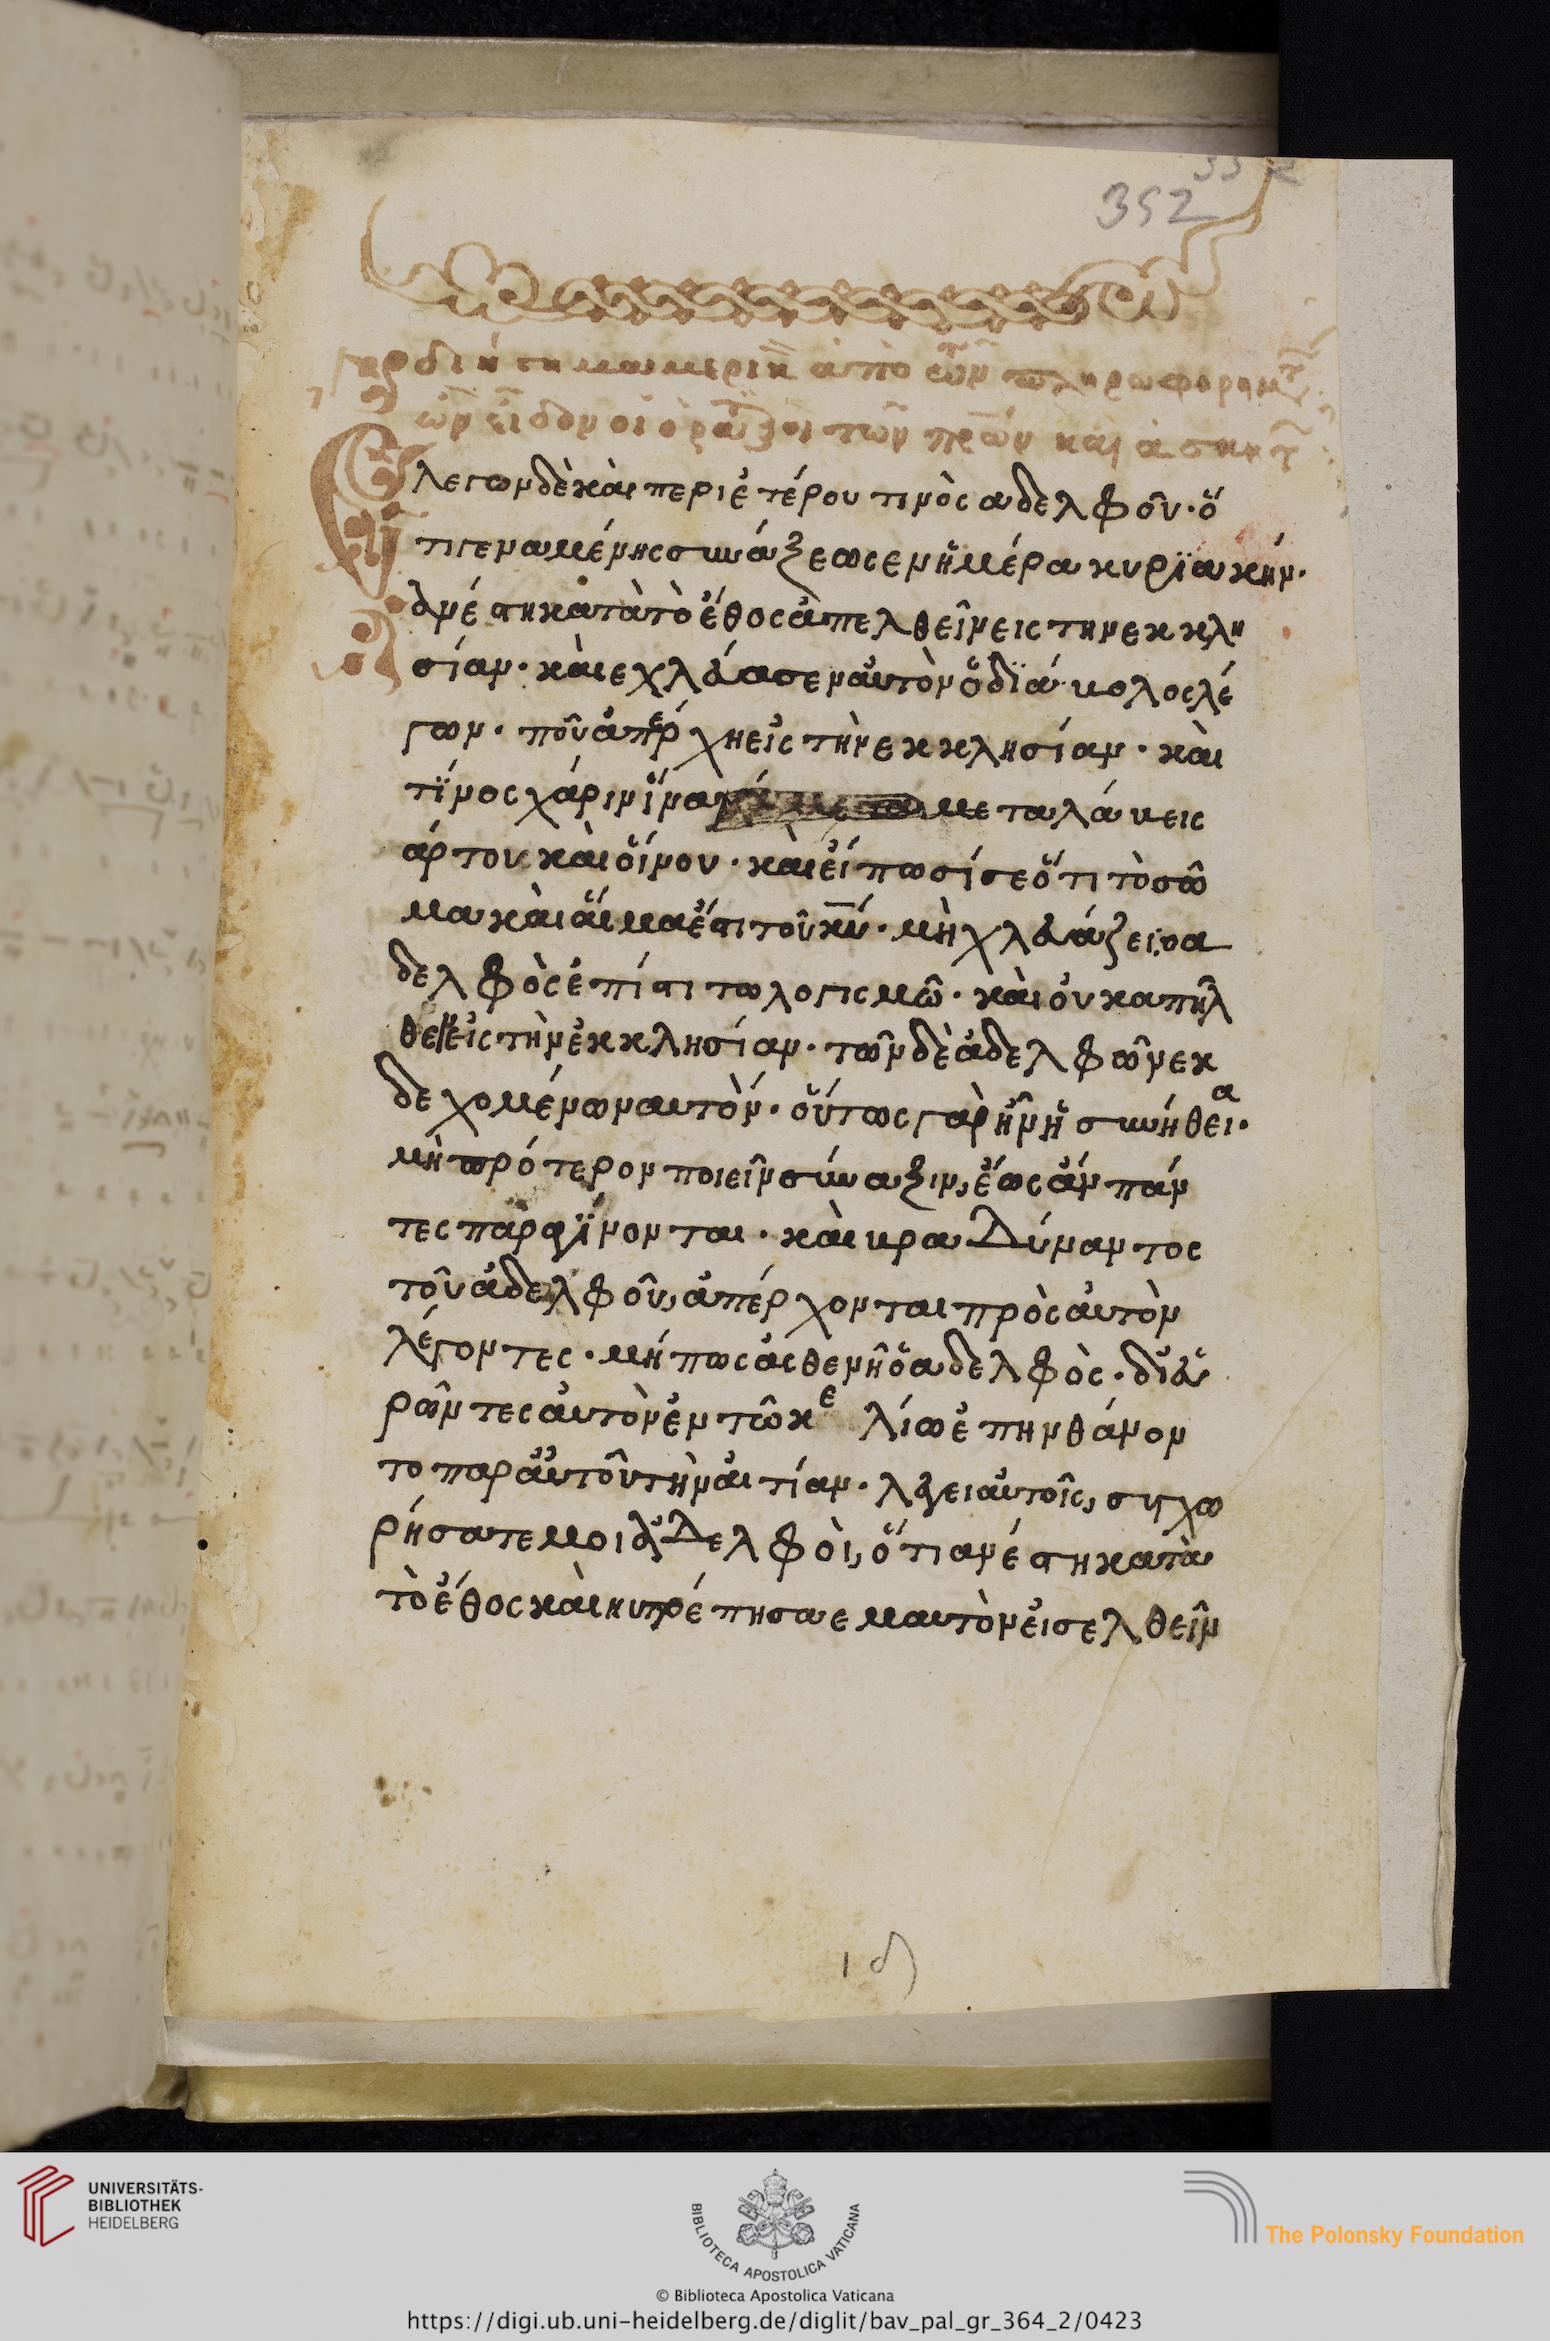 352
ἔλεγων δὲ καὶ περι ἑτέρου τινὸς αδελφοῦ· ὅ
τι γεναμένης συνάξεως εν ἡμέρα κυρϊακήν·
ἀνέστη κατὰ τὸ ἔθος ἀπελθεῖν εις την εκκλη
σίαν· καὶ εχλεύασεν αὐτὸν ὁ δϊάβολος λέ
γων· ποῦ ἀπέρχη εἰς τὴν εκκλησίαν· καὶ
τίνος χάριν ἵνα μεταλάβεις
άρτου καὶ οἵνου· καὶ εἴπωσί σε ὅτι τὸ σῶ
μα καὶ αἵμα ἔστι τοῦ κυ· μὴ χλευάζει. ο α
δελφὸς ἐπίστι τω λογισμῶ· καὶ ουκ απῆλ
θεν εἰς τὴν ἐκκλησίαν· τῶν δὲ ἀδελφῶν εκ
δεχομένων αυτόν· οὕτως γὰρ ἦν ἡ συνήθεια·
μὴ πρότερον ποιεῖν σύναξιν, ἕως ἂν πάν
τες παραγίνονται· καὶ βραδύναντος
τοῦ ἀδελφοῦ, ἀπέρχονται πρὸς αὐτὸν
λέγοντες· μή πως ἀσθενῆ ὁ αδελφὸς· δι εὑ
ρῶντες αὐτὸν ἐν τῶ κελίω ἐπηνθάνον
το παρ αὐτοῦ τὴν αἰτίαν· λέγει αὐτοῖς, συγχω
ρήσατε μοι ἀδελφὸι, ὅτι ανέστη κατὰ
τὸ ἔθος καὶ ηυπρέπησα εμαυτὸν εἰσελθεῖν
ιδ
UNIVERSITÄTS-
BIBLIOTHEK
HEIDELBERG
BIBLIOTECA APOSTOLICA VATICANA
The Polonsky Foundation
© Biblioteca Apostolica Vaticana
https://digi.ub.uni-heidelberg.de/diglit/bav_pal_gr_364_2/0423